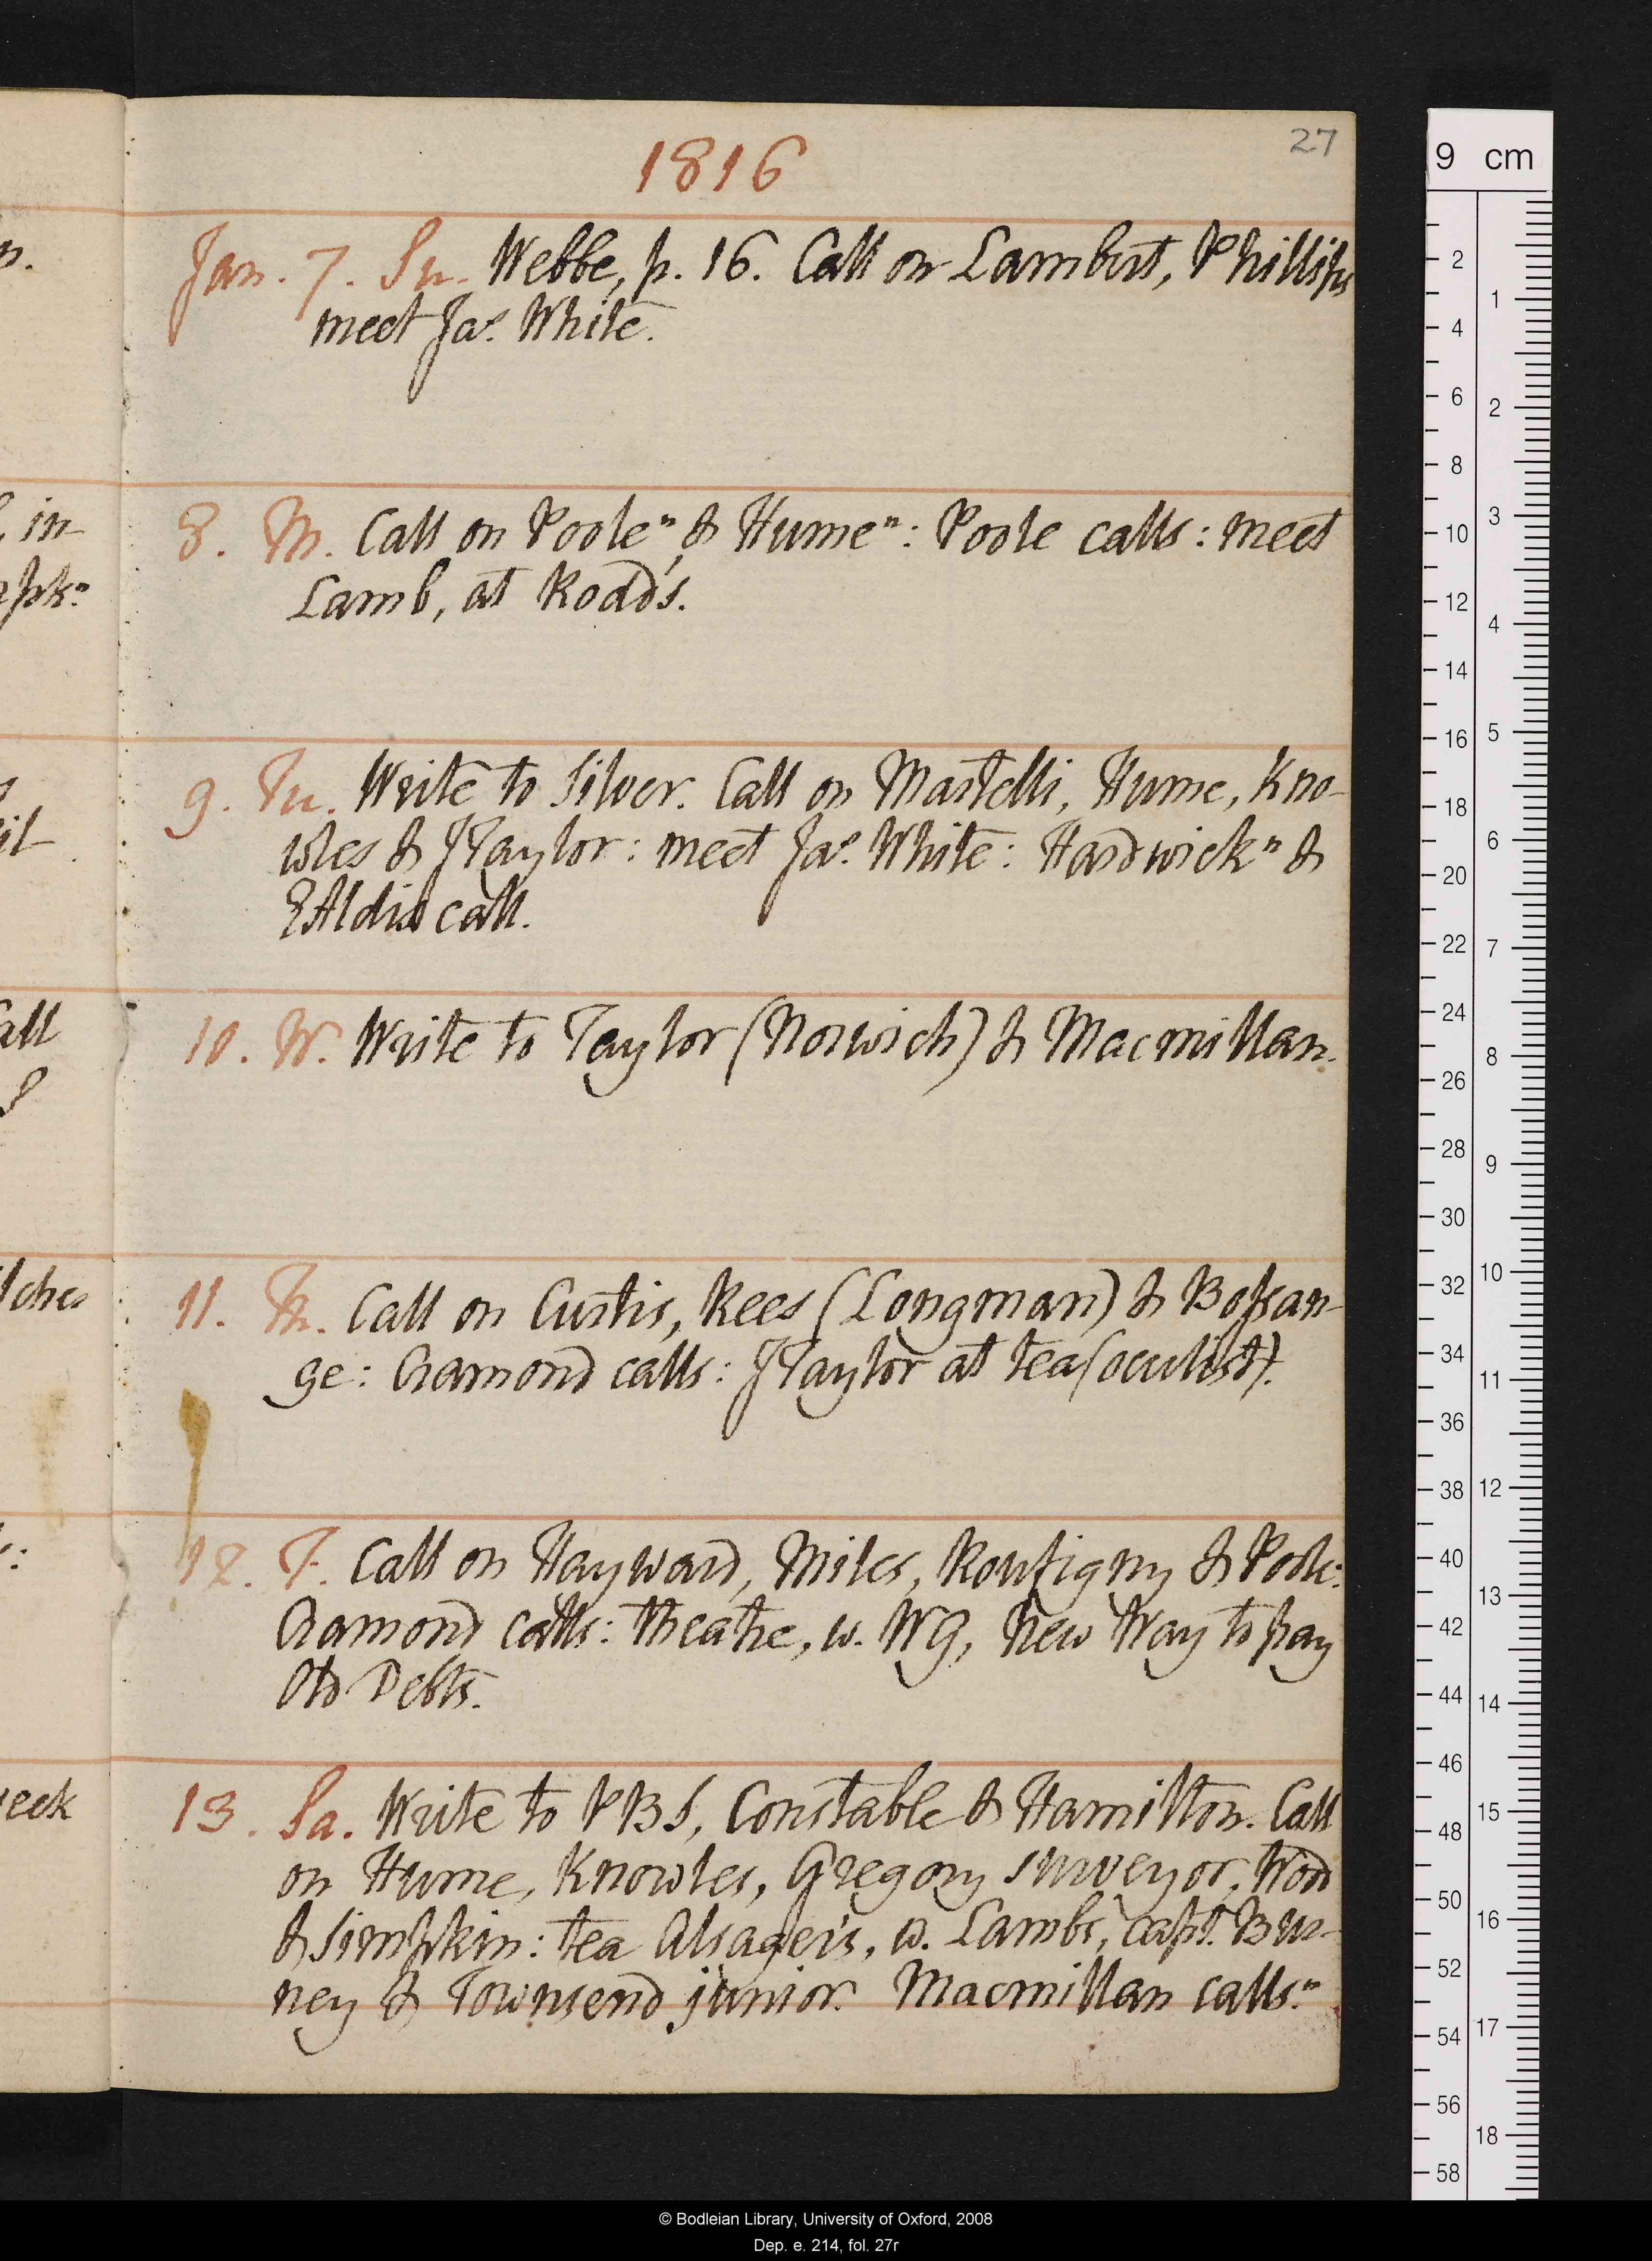 27
1816
Jan. 7. Su. Webbe, p. 16. Call on Lambert, Phillips
meet Jas. White.
8. M. Call on Poole" & Hume": Poole calls: meet
Lamb, at Rodd's.
9. Tu. Write to Silver. Call on Martelli, Hume, Kno-
wles & JTaylor: meet Jas. White: Hardwick" &
EAldis call.
10. W. Write to Taylor (Norwich) & Macmillan.
11. Th. Call on Curtis, Rees (Longman) & Bossan-
ge: Cramond calls: JTaylor at tea (oculist).
12. F. Call on Hayward, Miles, Routigny & Poole:
Cramond calls: theatre, w. WG, New Way to pay
Old Debts.
13. Sa. Write to PBS, Constable & Hamilton. Call
on Hume, Knowles, Gregory surveyor,
& Simpkin: tea Alsager's, w. Lambs, capt. Bur-
ney & Townsend junior. Macmillan calls."
n.
in-
all
eek
9 cm
2
4
6
8
10
12
14
16
18
20
22
24
26
28
30
32
34
36
38
40
42
44
46
48
50
52
54
56
58
1
2
3
4
5
6
7
8
9
10
11
12
13
14
15
16
17
18
© Bodleian Library, University of Oxford, 2008
Dep. e. 214, fol. 27r